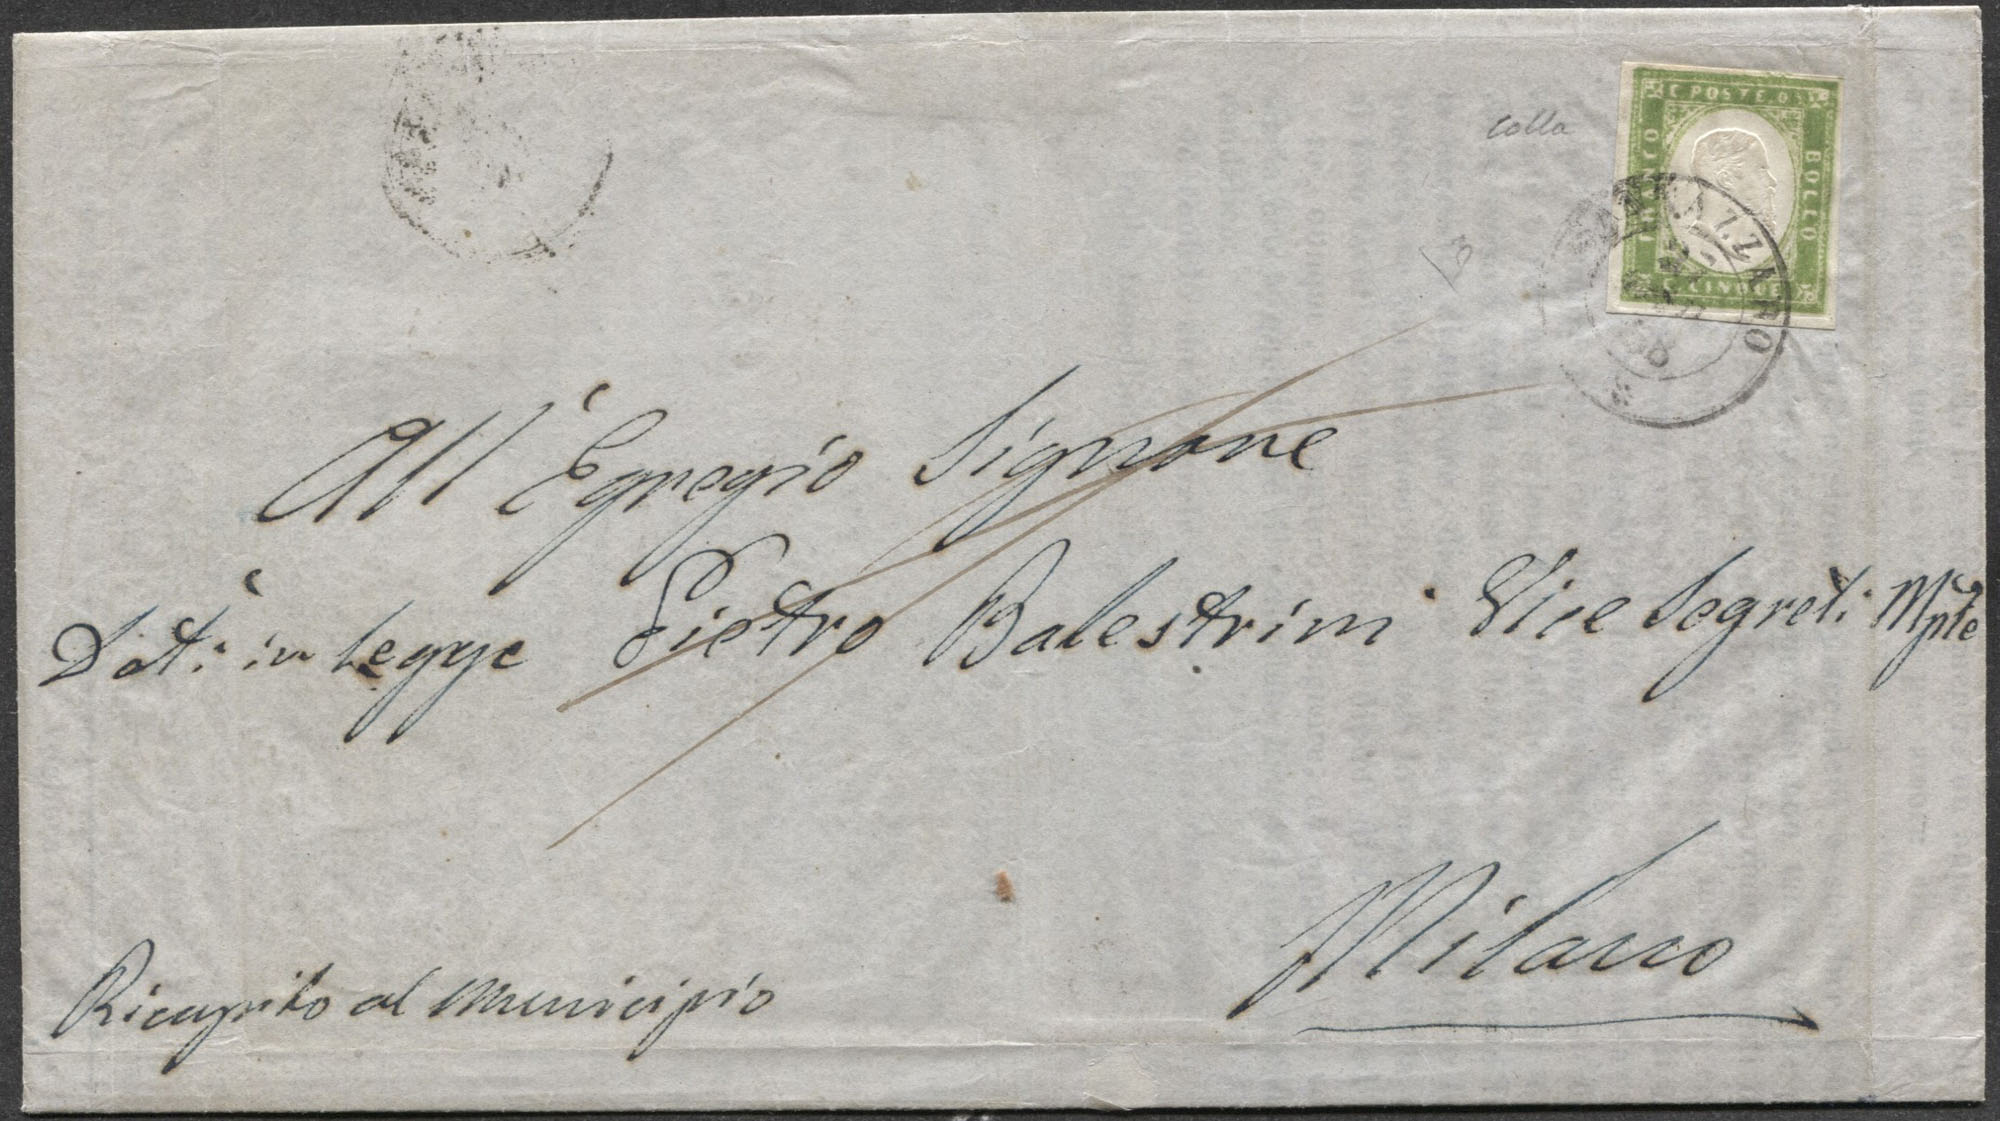 colla
C. POSTE.
FRANCO
BOLLO
C. CINQUE
SANNAZZARO
60
All' Egregio Signore
Dott: in Legge Pietro Balestrini Vice Segret: Mple
Milano
Ricapito al Municipio